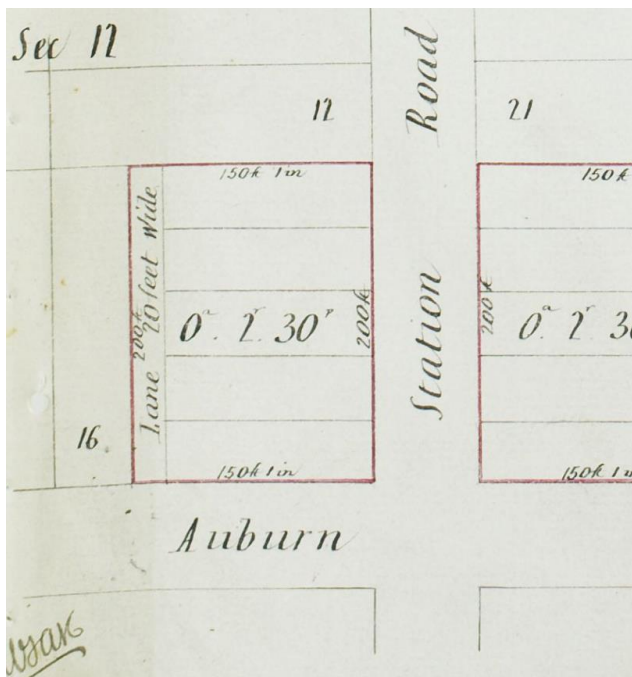 Sec 12
Road
12
21
150ft 1in
150ft
Lane 20 feet Wide
200ft
0a. 2r. 30p
200ft
Station
200ft
0a. 2r. 30
16
150ft 1in
150ft 1in
Auburn